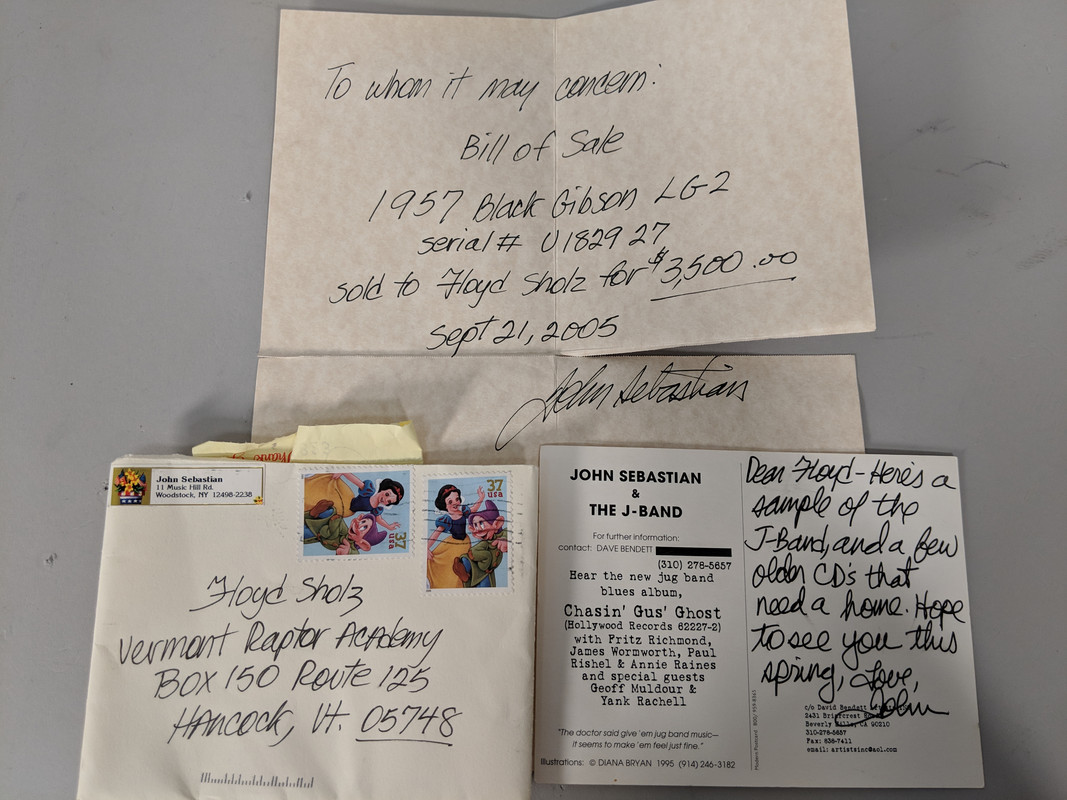 To whom it may concern:
Bill of Sale
1957 Black Gibson LG2
serial # U1829 27
sold to Floyd Sholz for $3,500.00
sept 21, 2005
John Sebastian
John Sebastian
11 Music Hill Rd.
Woodstock, NY 12498-2238
37
usa
37
usa
Floyd Sholz
Vermont Raptor Academy
Box 150 Route 125
Hancock, Vt. 05748
JOHN SEBASTIAN
&
THE J-BAND
For further information:
contact: DAVE BENDETT
(310) 278-5657
Hear the new jug band
blues album,
Chasin' Gus' Ghost
(Hollywood Records 62227-2)
with Fritz Richmond,
James Wormworth, Paul
Rishel & Annie Raines
and special guests
Geoff Muldour &
Yank Rachell
"The doctor said give 'em jug band music—
It seems to make 'em feel just fine."
Illustrations: © DIANA BRYAN 1995 (914) 246-3182
Modern Postcard
Dear Floyd - Here's a
sample of the
J-Band, and a few
older CD's that
need a home. Hope
to see you this
spring, Love,
John
c/o David Bendett
2431 Briarcrest Road
Beverly Hills, CA 90210
310-278-5657
Fax: 838-7411
email: artistsinc@aol.com